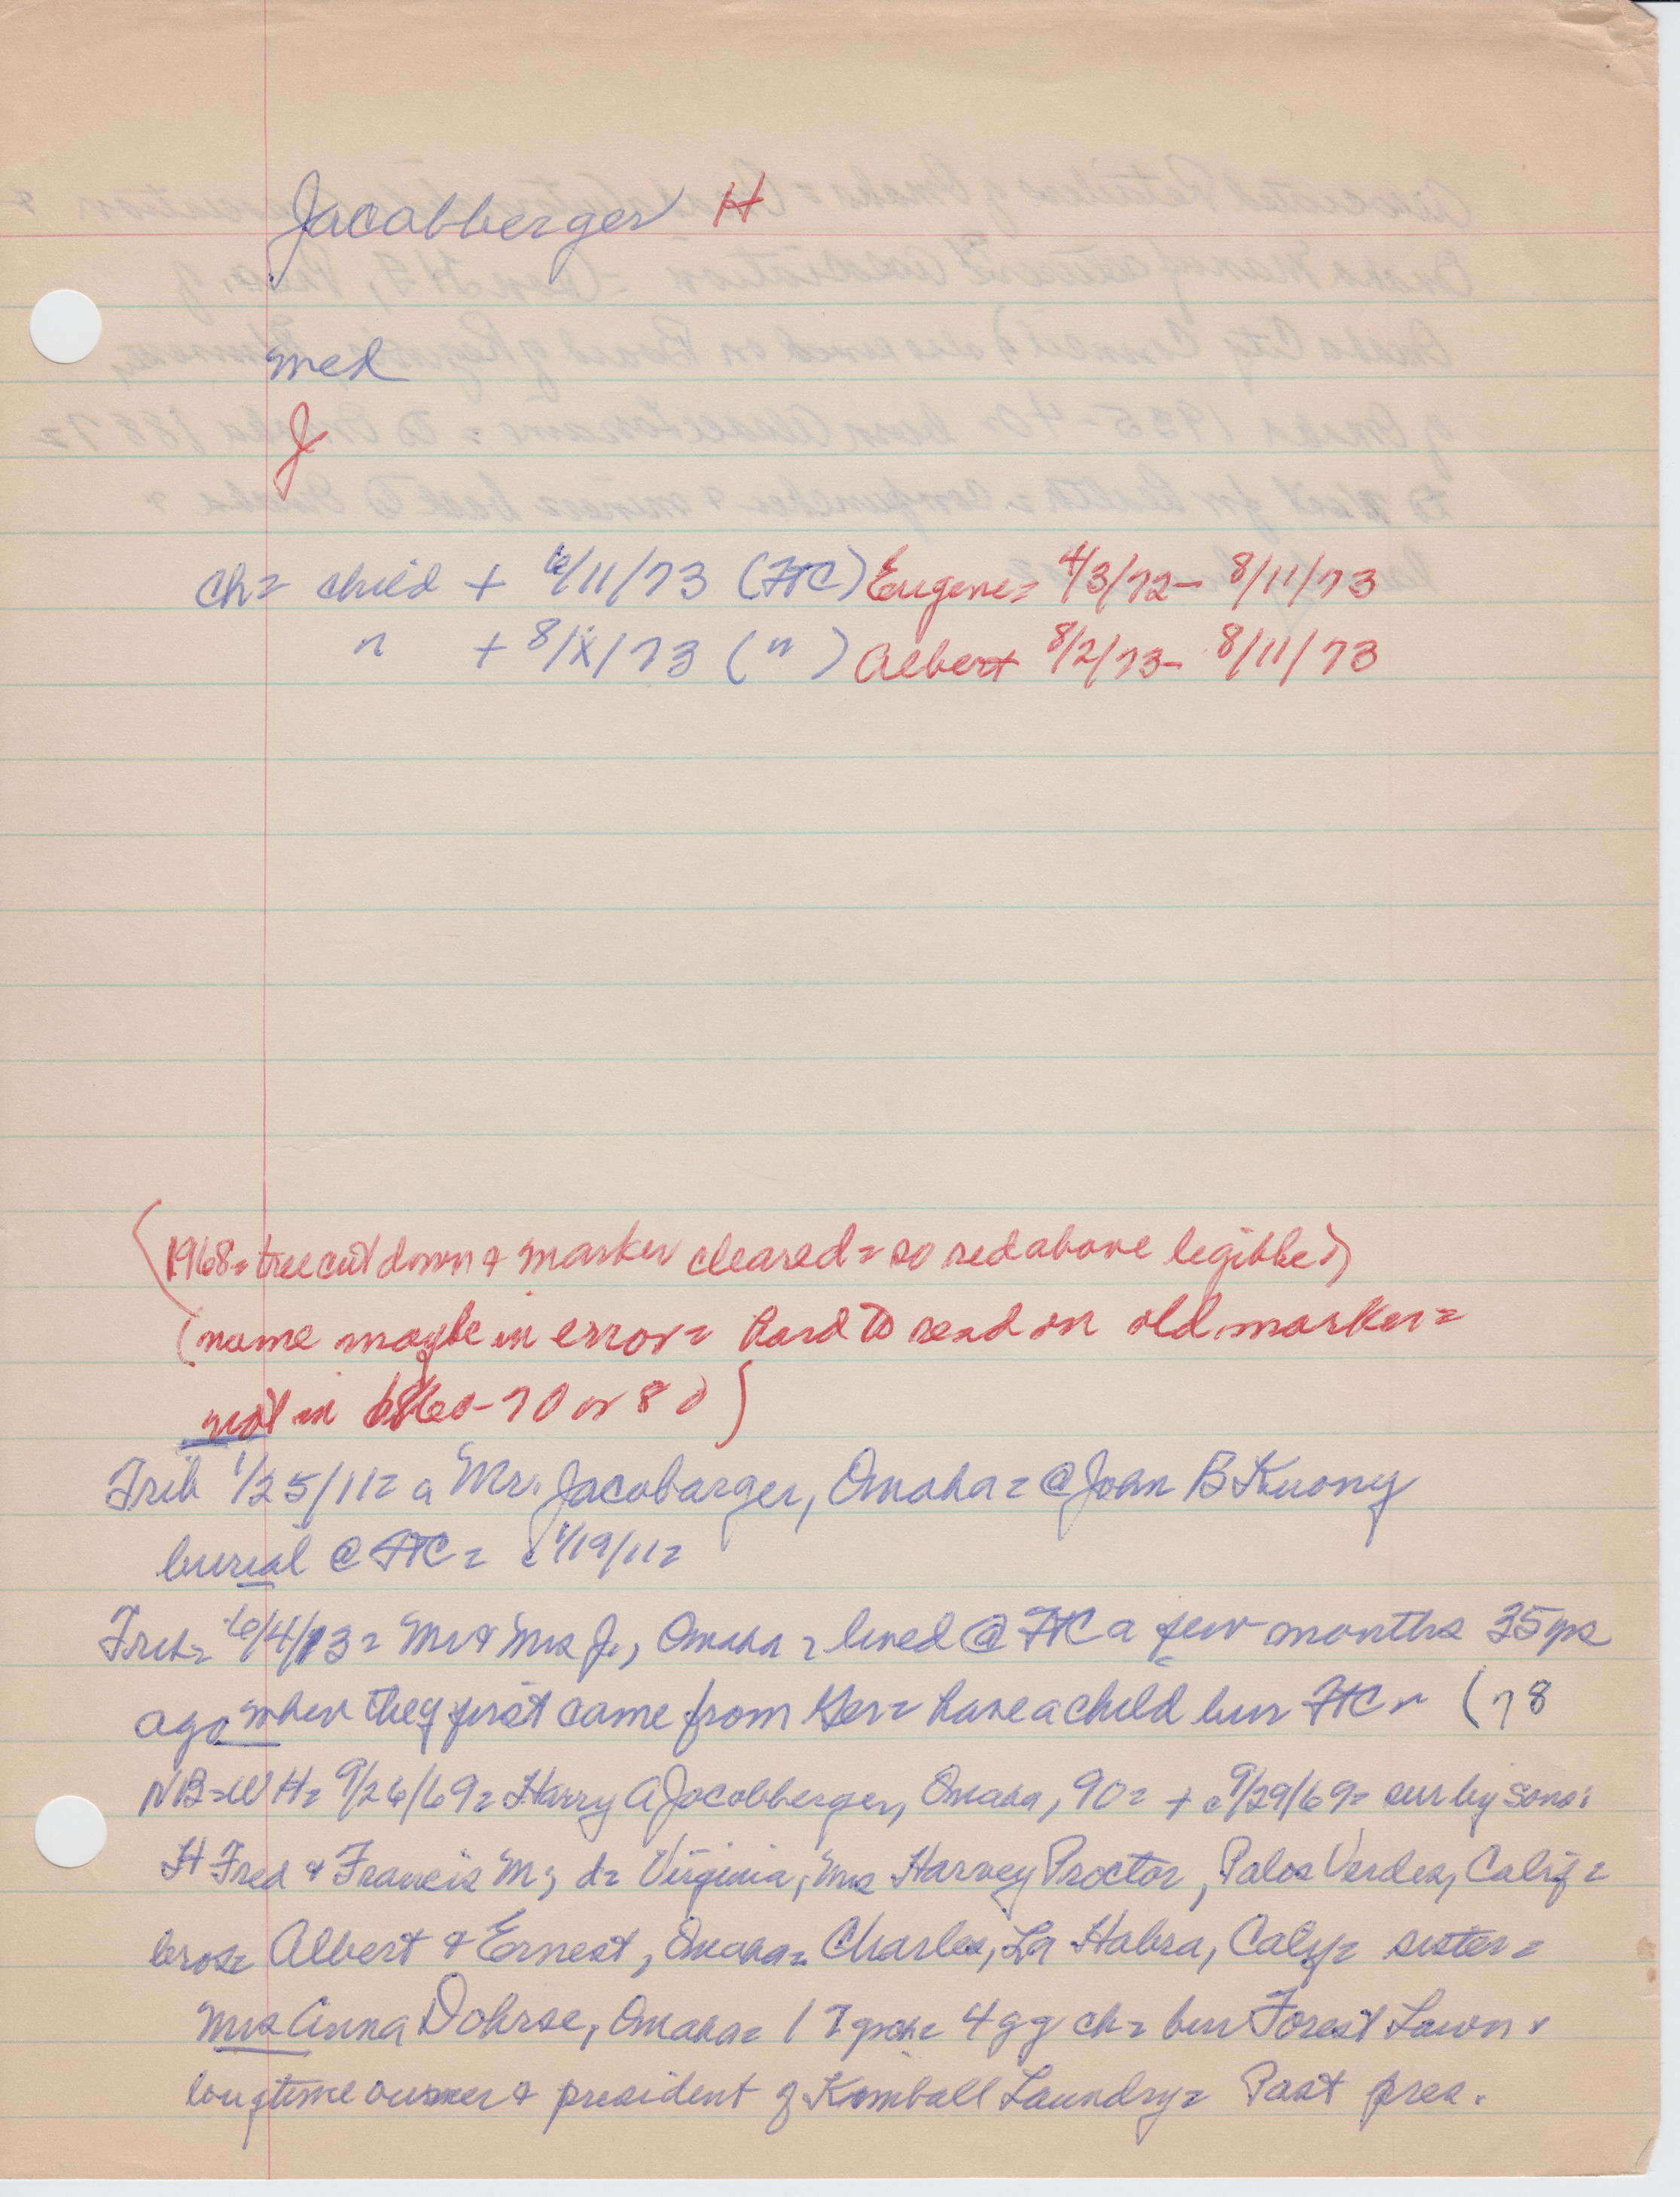 Jacobberger H
med
J
ch= child + 6/11/73 (FtC) Eugene= 4/3/72- 8/11/73
" + 8/X/73 (") Albert 8/2/73- 8/11/73
(1968= tree cut down & marker cleared= so red above legible)
(name maybe in error= hard to read on old marker=
not in 1860-70 or 80)
Trib 1/25/11= a Mr. Jacobarger, Omaha= @ John B Kuony
burial @ FtC= c 1/19/11=
Trib= 6/4/13= Mr & Mrs J., Omaha= lived @ FtC a few months 35 yrs
ago when they first came from Ger= have a child bur FtC (78
NB=WH= 9/26/69= Harry A Jacobberger, Omaha, 90= + c 9/29/69= sur by sons:
H Fred & Francis M; d= Virginia, Mrs Harvey Proctor, Palos Verdes, Calif=
bros= Albert & Ernest, Omaha= Charles, La Habra, Calif= sister=
Mrs Anna Dohrse, Omaha= 17 grch= 4 gg ch= bur Forest Lawn
longtime owner & president of Kimball Laundry= Past pres.